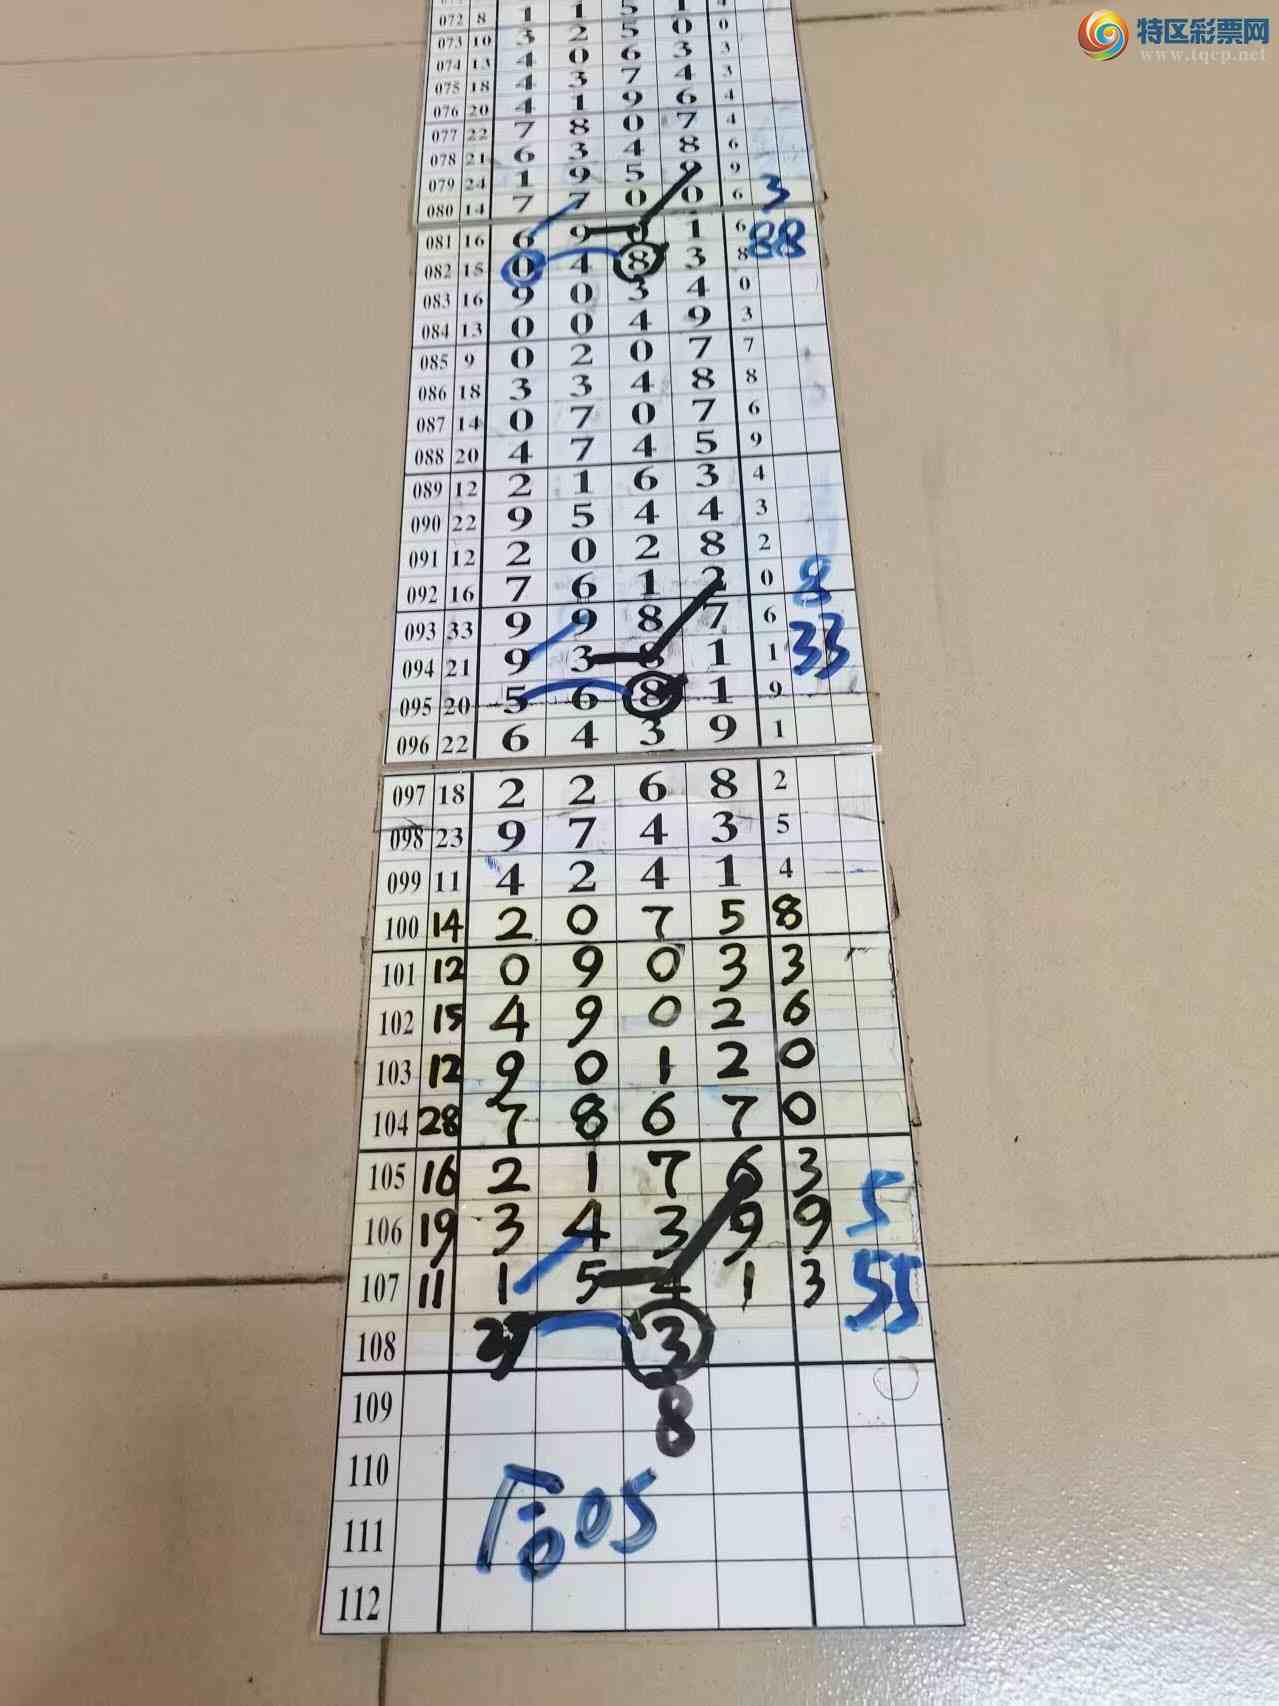 特区彩票网
www.tqcp.net
072 8 1 1 5 1
073 10 3 2 5 0 0
074 13 4 0 6 3 3
075 18 4 3 7 4 3
076 20 4 1 9 6 4
077 22 7 8 0 7 4
078 21 6 3 4 8 6
079 24 1 9 5 9 9
080 14 7 7 0 0 6 3
081 16 6 9 1 6 88
082 15 0 4 8 3 8
083 16 9 0 3 4 0
084 13 0 0 4 9 3
085 9 0 2 0 7 7
086 18 3 3 4 8 8
087 14 0 7 0 7 6
088 20 4 7 4 5 9
089 12 2 1 6 3 4
090 22 9 5 4 4 3
091 12 2 0 2 8 2
092 16 7 6 1 2 0 8
093 33 9 9 8 7 6
094 21 9 3 8 1 1 33
095 20 5 6 8 1 9
096 22 6 4 3 9 1
097 18 2 2 6 8 2
098 23 9 7 4 3 5
099 11 4 2 4 1 4
100 14 2 0 7 5 8
101 12 0 9 0 3 3
102 15 4 9 0 2 6
103 12 9 0 1 2 0
104 28 7 8 6 7 0
105 16 2 1 7 6 3
106 19 3 4 3 9 9 5
107 11 1 5 4 1 3 55
108 27 3
109 8
110
111 后05
112